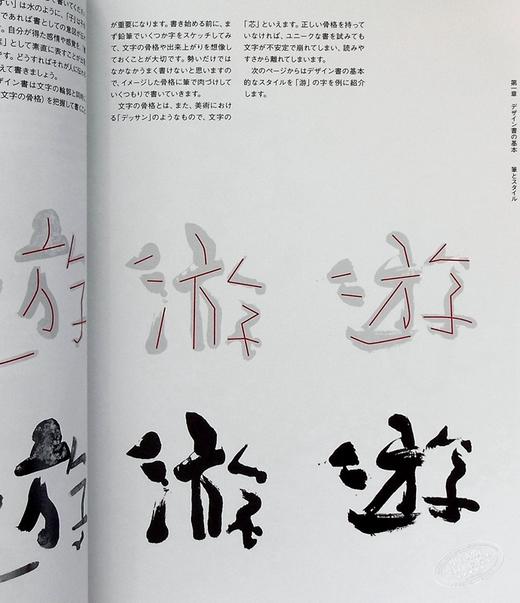 て書いてくだ
ずい」は水のように、「子」は子
であれば書としての意図が伝
す。自分が得た感情や感覚を、書
」として素直に表すことが
えて書きましょう。
が重要になります。書き始める前に、ま
ず鉛筆でいくつか字をスケッチしてみ
て、文字の骨格や出来上がりを想像し
ておくことが大切です。勢いだけでは
なかなかうまく書けないと思いますの
で、イメージした骨格に筆で肉づけして
いくつもりで書いていきます。
文字の骨格とは、また、美術におけ
る「デッサン」のようなもので、文字の
「芯」といえます。正しい骨格を持って
いなければ、ユニークな書を試みても
文字が不安定で崩れてしまい、読みや
すさから離れてしまいます。
次のページからはデザイン書の基本
的なスタイルを「游」の字を例に紹介
します。
第一章 デザイン書の基本 筆とスタイル
游 遊
游 遊